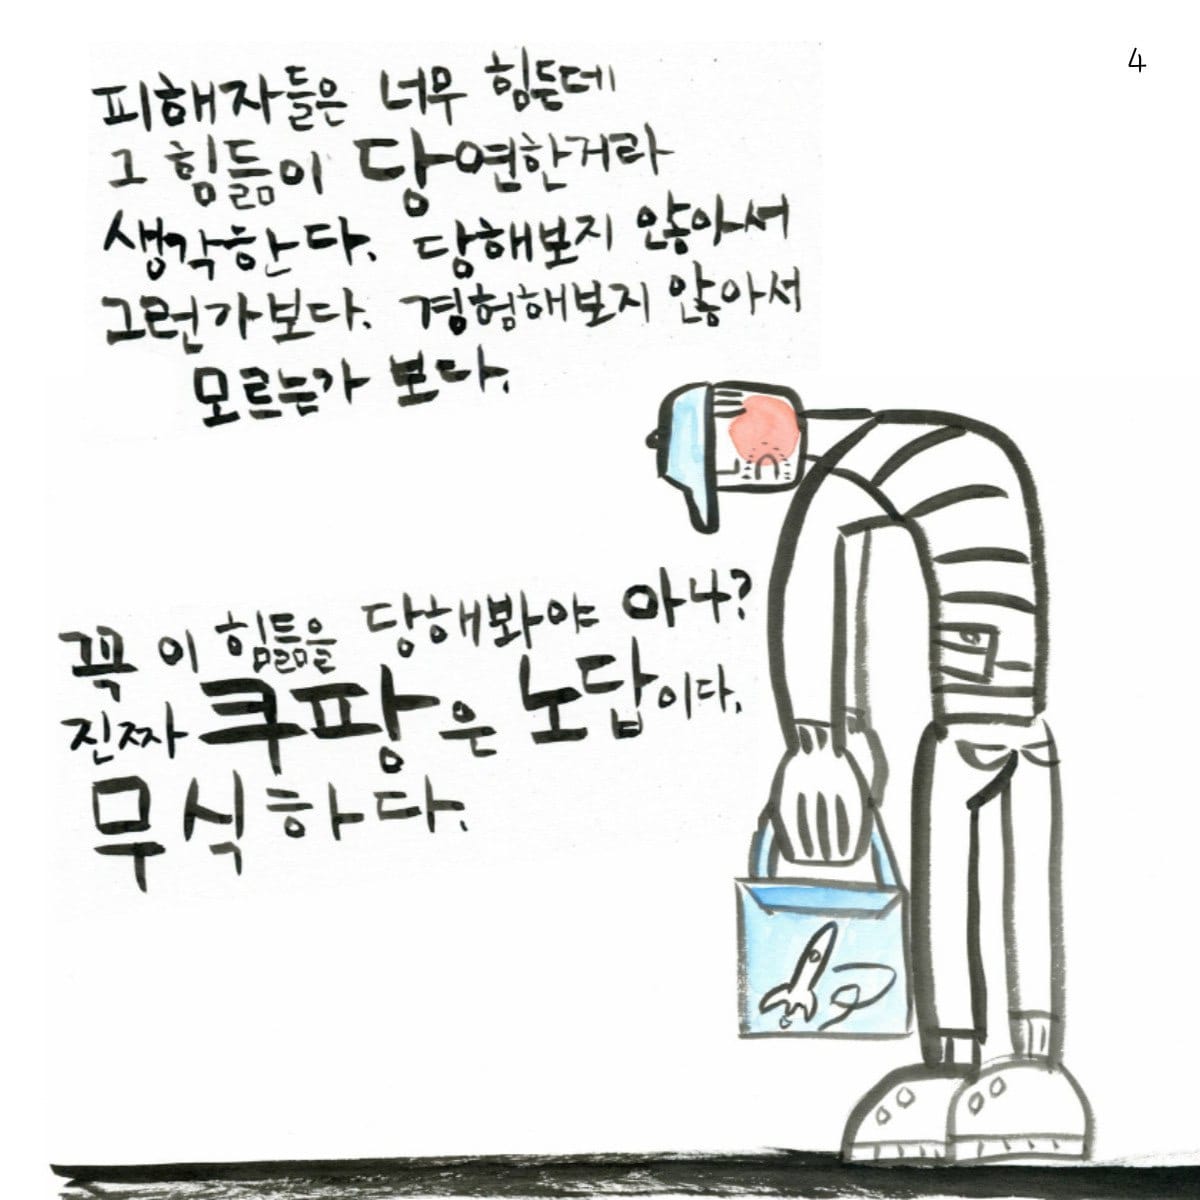 4
피해자들은 너무 힘든데
그 힘듦이 당연한거라
생각한다. 당해보지 않아서
그런가보다. 경험해보지 않아서
모르는가 보다.
꼭 이 힘듦을 당해봐야 아나?
진짜 쿠팡은 노답이다.
무식하다.